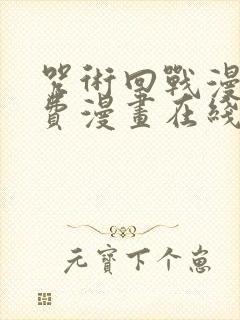 咒術回戰漫
費漫畫在綫
元寶下个崽